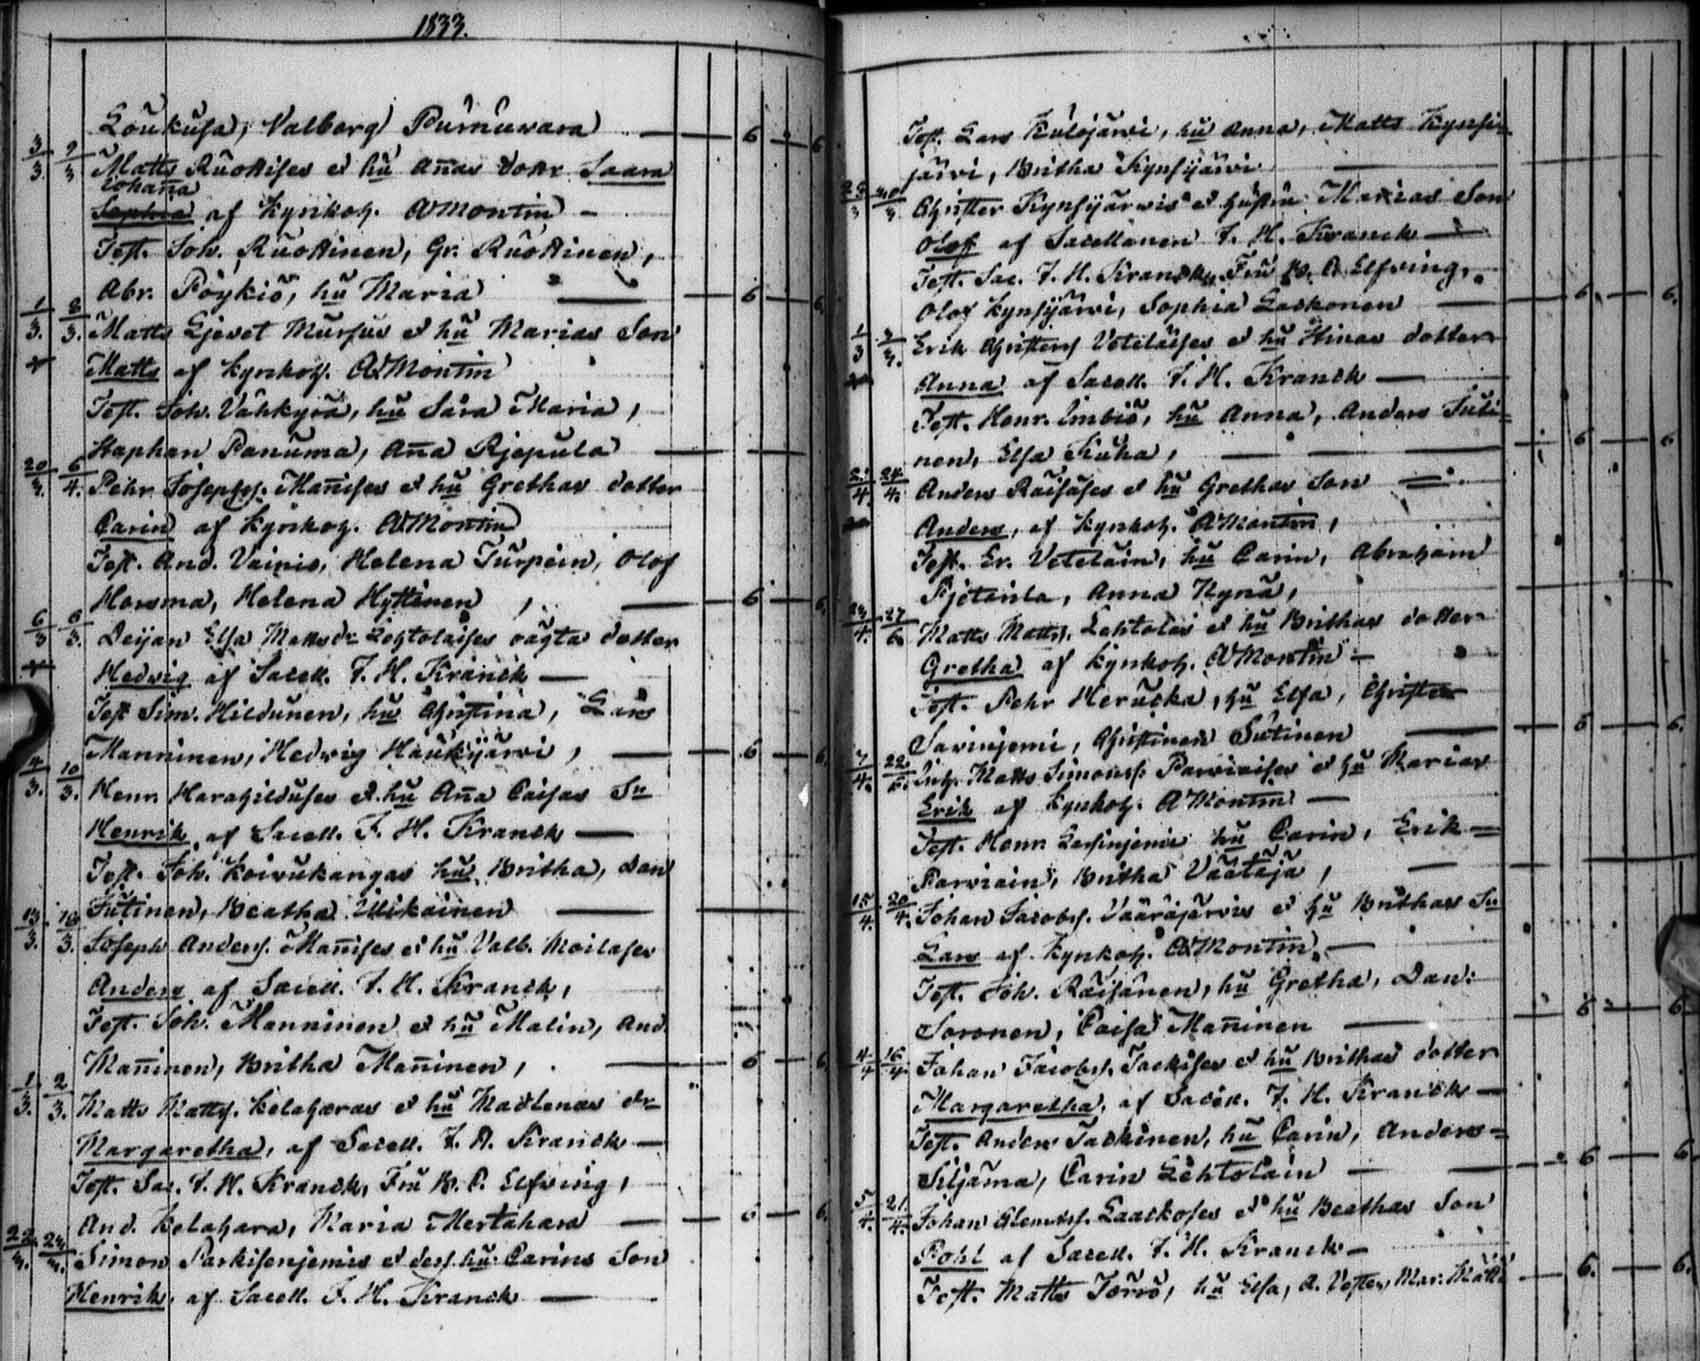 1833.
Loukusa, Valborg Pumuvara — 6 6
3/3. 9/3 Matts Ruottises et hu Añas dottr Saara
Johaña
Sophia af Kyrkoh. A Montin —
Test. Joh. Ruottinen, Gr. Ruottinen,
Abr. Pöykiö, hu Maria — 6 6
1/3. 2/3. Matts Ejevet Mursus et hu Marias Son
Matts af Kyrkoh. A Montin
Test. Joh. Vähkyrä, hu Sara Maria,
Staphan Panuma, Aña Rjepula
20/3. 6/4. Pehr Josephss. Mañises et hu Grethas dotter
Carin af Kyrkoh. A Montin
Test. And. Vainio, Helena Turpein, Olof
Horsma, Helena Hyttinen, — 6 6
6/3 6/3. Deijan Elsa Mattsdr Lehtolaises oägta dotter
Hedvig af Sacell. F. H. Kranck —
Test Sim. Hildunen, hu Christina, Lars
Manninen, Hedvig Haukijärvi, — 6 6
4/3. 10/3. Henr. Harahilduses et hu Aña Caisas Sn
Henrik, af Sacell. F. H. Kranck —
Test. Joh. Koivukangas hu Britha, Dan
Jutinen, Beatha Ulikainen —
13/3. 13/3. Joseph Anderss. Mañises et hu Valb. Moilases
Anders af Sacell. F. H. Kranck,
Test. Joh. Manninen et hu Malin, And.
Mañinen, Britha Mañinen, — 6 6
1/3. 2/3. Matts Mattss. Kelaharas et hu Madlenas dr
Margaretha, af Sacell. F. H. Kranck —
Test. Sac. F. H. Kranck, Fru B. C. Elfving,
And. Kelahara, Maria Mertahara — 6 6
22/3. 24/3. Simon Parkisenjemis et dess hu Carins Son
Henrik, af Sacell. F. H. Kranck —
Test. Lars Kulojärvi, hu Anna, Matts Kynsi-
järvi, Britha Kynsijärvi —
Christer Kynsijärvis et hustru Marias Son
Olof af Sacellanen F. H. Kranck —
Test. Sac. F. H. Kranck, Fru B. C. Elfving,
Olof Kynsijärvi, Sophia Laskonen — 6 6.
1/3 3/3. Erik Christerss Veteläises et hu Stinas dotter
Anna af Sacell. F. H. Kranck —
Test. Henr. Imbiö, hu Anna, Anders Juti-
nen, Elsa Kuha, — 6 6
24/4. Anders Räisäses et hu Grethas Son
Anders, af Kyrkoh. A Montin,
Test. Er. Vetelain, hu Carin, Abraham
Pjetarila, Anna Kynä,
27/6. Matts Mattss. Lehtolas et hu Brithas dotter
Gretha af Kyrkoh. A Montin —
Test. Pehr Herucka, hu Elsa, Christer
Savinjemi, Christinen Jutinen — 6 6.
7/4. Inh. Matts Simonss. Parviaises et hu Marias
Erik af Kyrkoh. A Montin —
Test. Henr. Lessinjemi hu Carin, Erik
Parviain, Britha Väätäjä, —
15/4. 20/4. Johan Jacobss. Vääräjärvis et hu Brithas Sn
Lars af Kyrkoh. A Montin, —
Test. Joh. Räisänen, hu Gretha, Dan:
Soronen, Caisa Mañinen — 6 6
4/4 16/4. Johan Jacobss. Taskises et hu Brithas dotter
Margaretha, af Sacell. F. H. Kranck —
Test. Anders Taskinen, hu Carin, Anders
Siljama, Carin Lehtolain — 6 6
5/4. 21/4. Johan Clemetss. Laaskoses et hu Beathas Son
Pohl af Sacell. F. H. Kranck —
Test. Matts Torrö, hu Elsa, A. Vester, Mar. Mätt 6. 6.